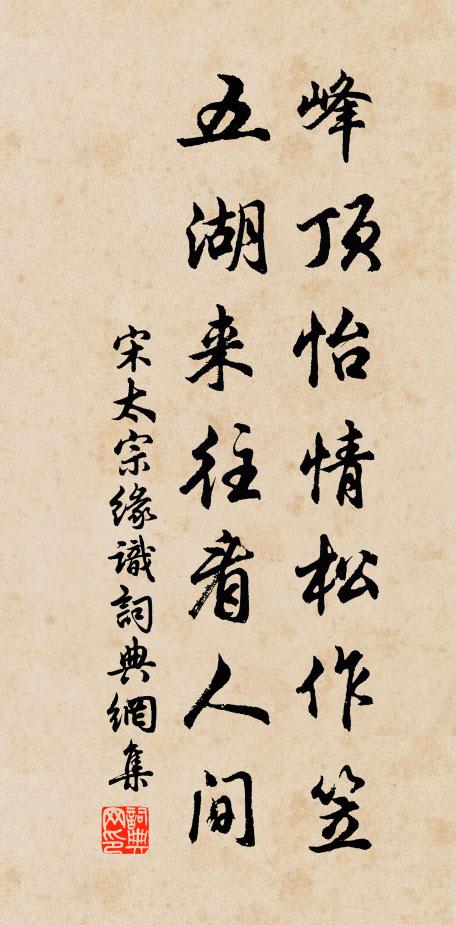 峰顶怡情松作笠
五湖来往看人间
宋太宗缘識詞典網集
詞典网印